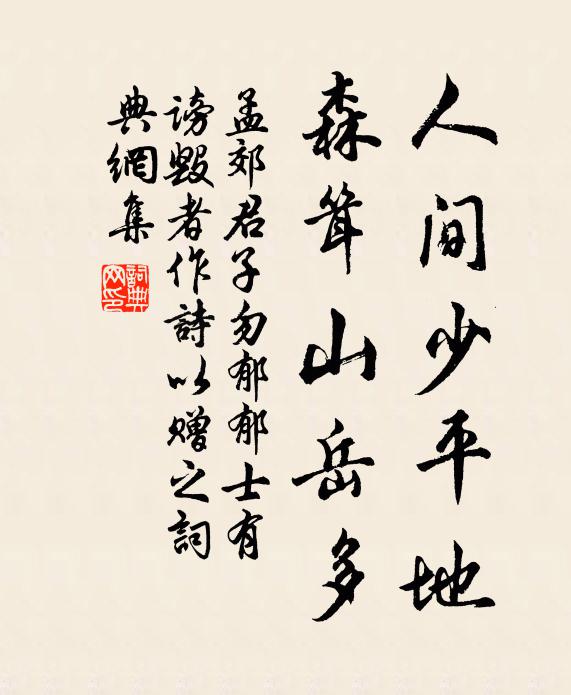 人間少平地
森聳山岳多
孟郊君子勿郁郁士有
謗毀者作詩以贈之詞
典網集
詞典网印